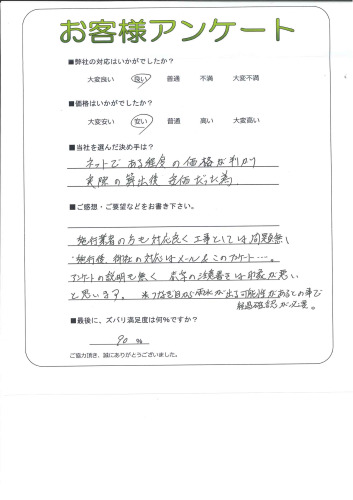 お客様アンケート
■弊社の対応はいかがでしたか?
大変良い 良い 普通 不満 大変不満
■価格はいかがでしたか?
大変安い 安い 普通 高い 大変高い
■当社を選んだ決め手は?
ネットである程度の価格が判り
実際の算出後 安価だった為
■ご感想・ご要望などをお書き下さい。
施行業者の方も対応良く工事としては問題無し
施行後、御社の対応はメール&このアンケート…。
アンケートの説明も無く 赤字の注意書きは印象が悪い
と思います。 ※つなぎ目から雨水が出る可能性があるとの事で
経過確認が必要。
■最後に、ズバリ満足度は何%ですか?
90 %
ご協力頂き、誠にありがとうございました。